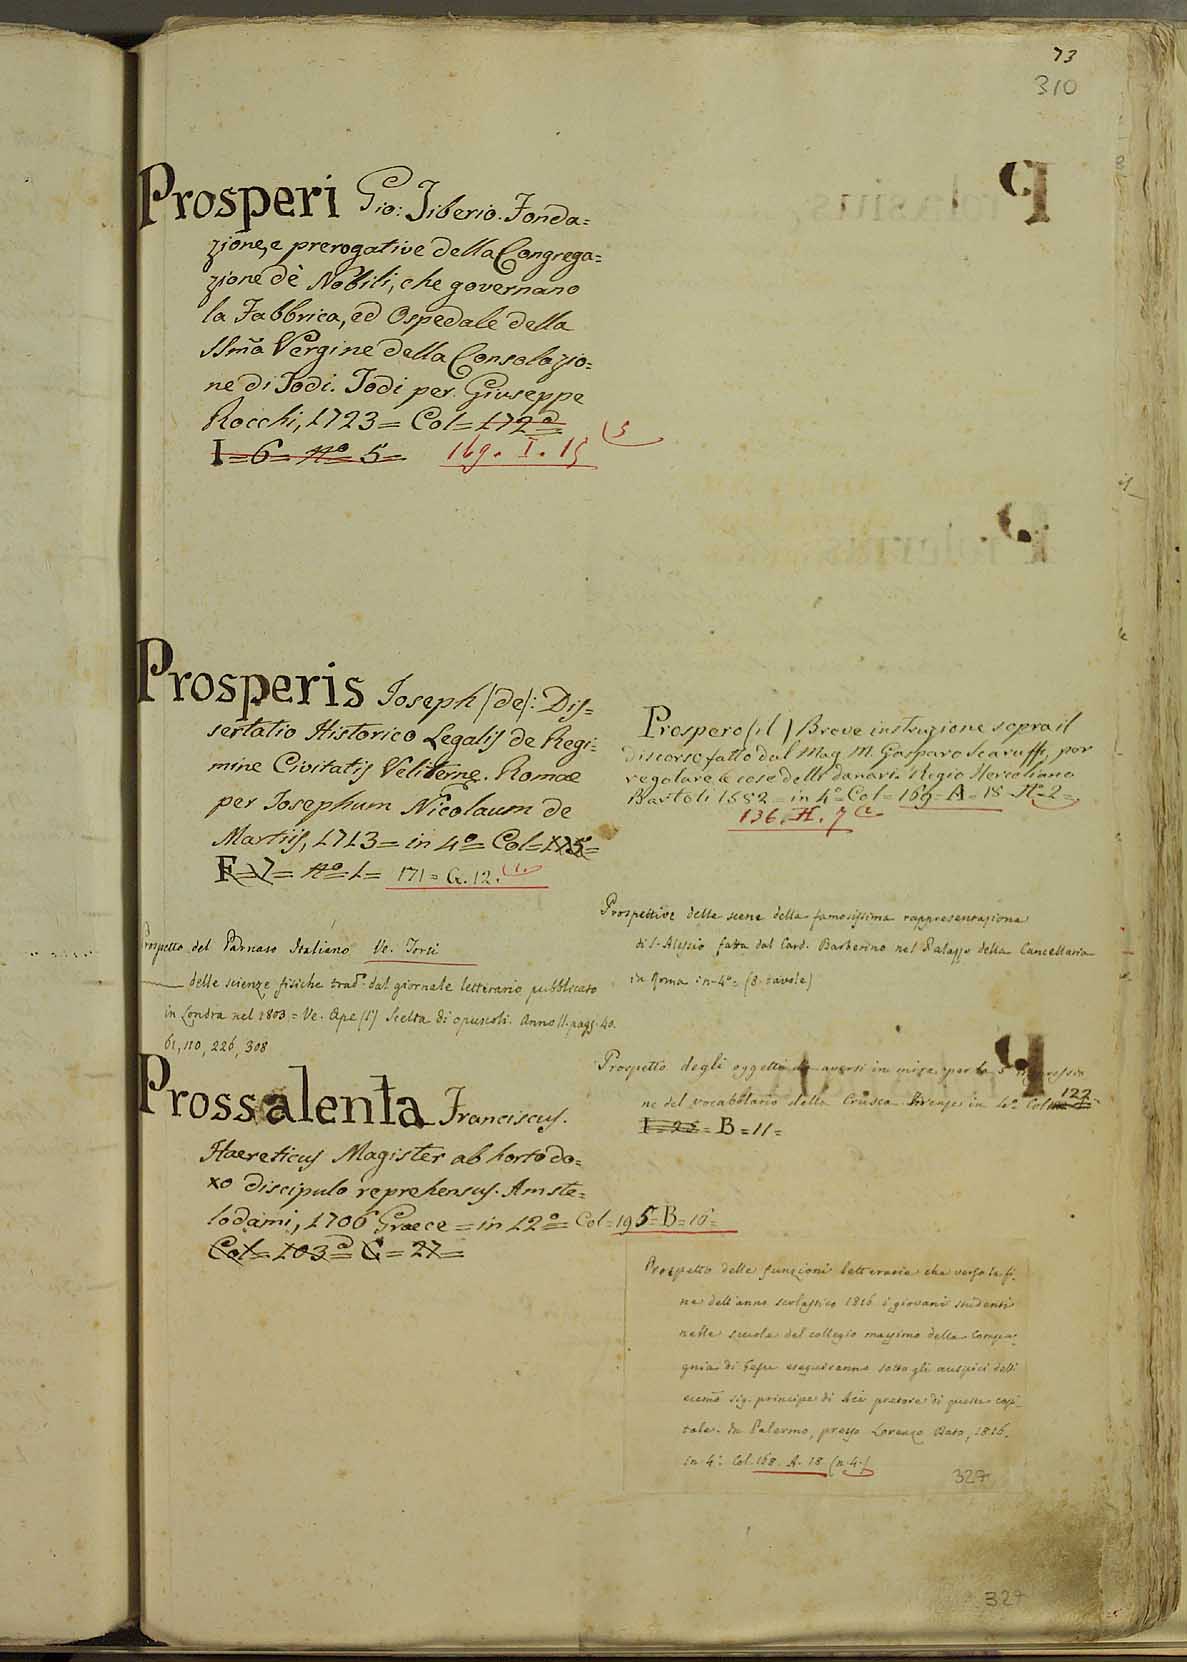 73
310
Prosperi Gio: Tiberio. Fonda=
zione, e prerogative della Congrega=
zione dè Nobili, che governano
la Fabbrica, ed Ospedale della
SSm̃a Vergine della Consolazio=
ne di Todi. Todi per Giuseppe
Rocchi, 1723 = Col = 172
I = 6 = Nº 5 = 169. I. 15 (5
Prosperis Joseph /de/: Dis=
sertatio Historico Legalis de Regi=
mine Civitatis Veliternę. Romae
per Josephum Nicolaum de
Martiis, 1713 = in 4º = Col = 175 =
F = 7 = Nº 1 = 171 = G. 12. (1.
Prospetto del Parnaso Italiano Ve. Torti
delle scienze fisiche trad. dal giornale letterario pubblicato
in Londra nel 1803 = Ve. Ape (l') Scelta di opuscoli. Anno II. pagg. 40.
61, 110, 226, 308
Prossalenta Franciscus.
Haereticus Magister ab hortodo=
xo discipulo reprehensus. Amste=
lodami, 1706 Graece = in 12º = Col = 195 = B = 16 =
Col = 103 = C = 27 =
Prospero (il) Breve instruzione sopra il
discorso fatto dal Mag. M. Gasparo Scaruffi, per
regolare le cose delli danari. Regio Hercoliano
Bartoli 1582 = in 4º = Col = 169 = A = 18 Nº 2 =
136. H. 7 (2
Prospettive delle scene della famosissima rappresentazione
di S. Alessio fatta dal Card. Barberino nel Palazzo della Cancellaria
in Roma in 4º = (8. tavole)
Prospetto degli oggetti da aversi in mira per la 5
ne del vocabolario della Crusca. Firenze in 4º Col 122
I = 25 = B = 11 =
Prospetto delle funzioni letterarie che verso la fi-
ne dell'anno scolastico 1816 i giovani studenti
nelle scuole del collegio massimo della Compa-
gnia di Gesu eseguiranno sotto gli auspici dell'
eccm̃o sig. principe di Aci pretore di questa capi-
tale. In Palermo, presso Lorenzo Dato, 1816.
in 4º Col. 168. A. 18 (n. 4.)
327
327